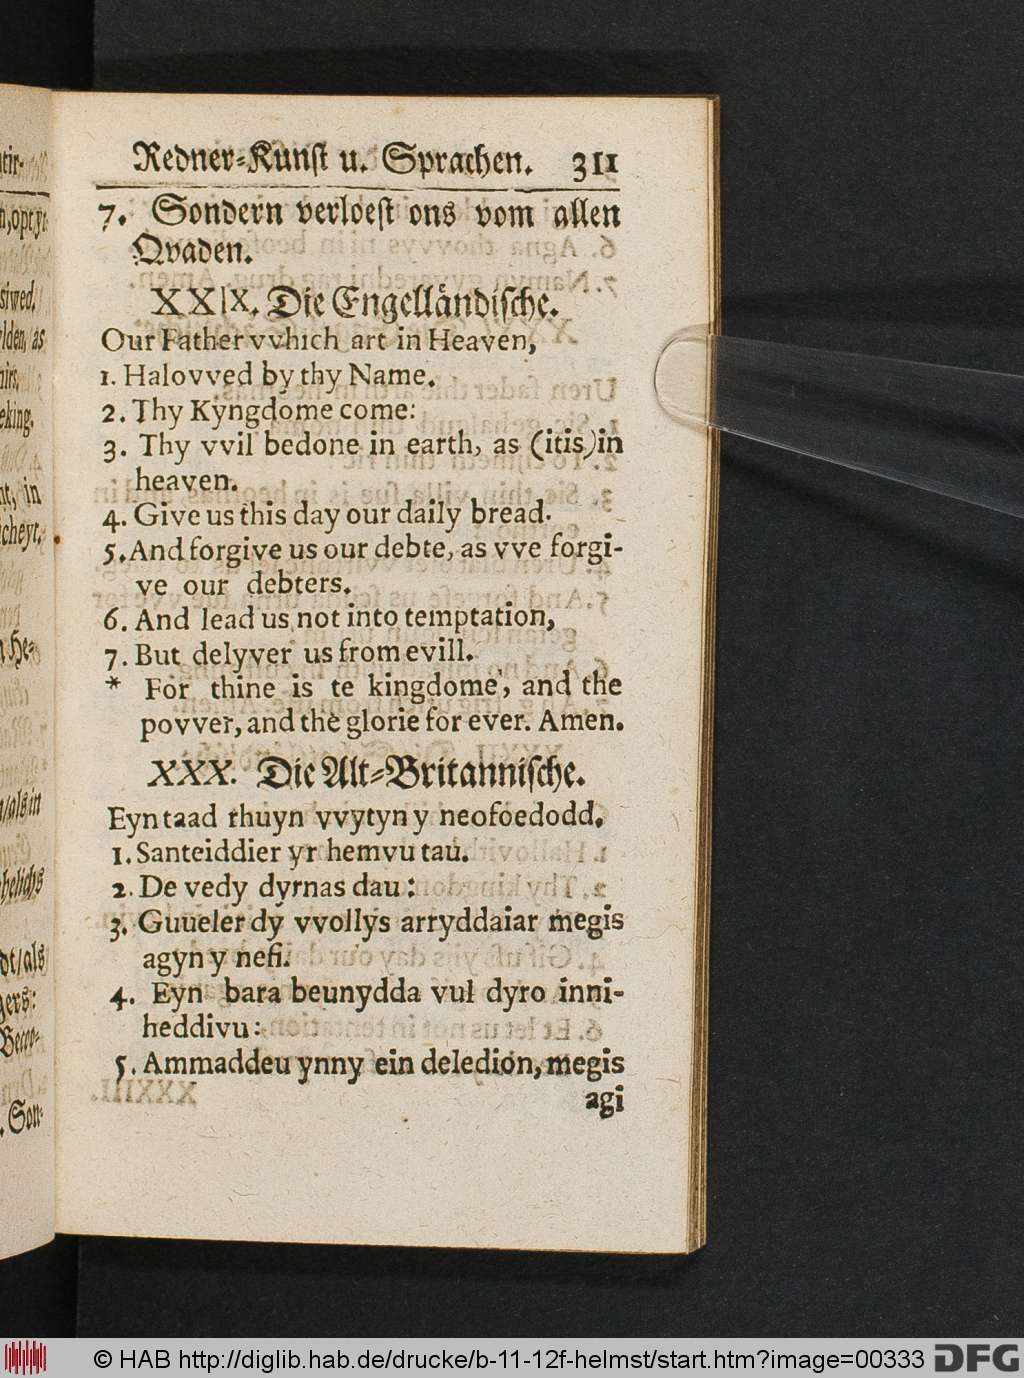 Redner-Kunst u. Sprachen. 311
7. Sondern verloest ons vom allen
Qvaden.
XXIX. Die Engelländische.
Our Father vvhich art in Heaven,
1. Halovved by thy Name.
2. Thy Kyngdome come:
3. Thy vvil bedone in earth, as (itis) in
heaven.
4. Give us this day our daily bread.
5. And forgive us our debte, as vve forgi-
ve our debters.
6. And lead us not into temptation,
7. But delyver us from evill.
* For thine is te kingdome, and the
povver, and the glorie for ever. Amen.
XXX. Die Alt-Britannische.
Eyn taad rhuyn vvytyn y neofoedodd.
1. Santeiddier yr hemvu tau.
2. De vedy dyrnas dau:
3. Guueler dy vvollys arryddaiar megis
agyn y nefi.
4. Eyn bara beunydda vul dyro inni-
heddivu:
5. Ammaddeu ynny ein deledion, megis
agi
© HAB http://diglib.hab.de/drucke/b-11-12f-helmst/start.htm?image=00333 DFG